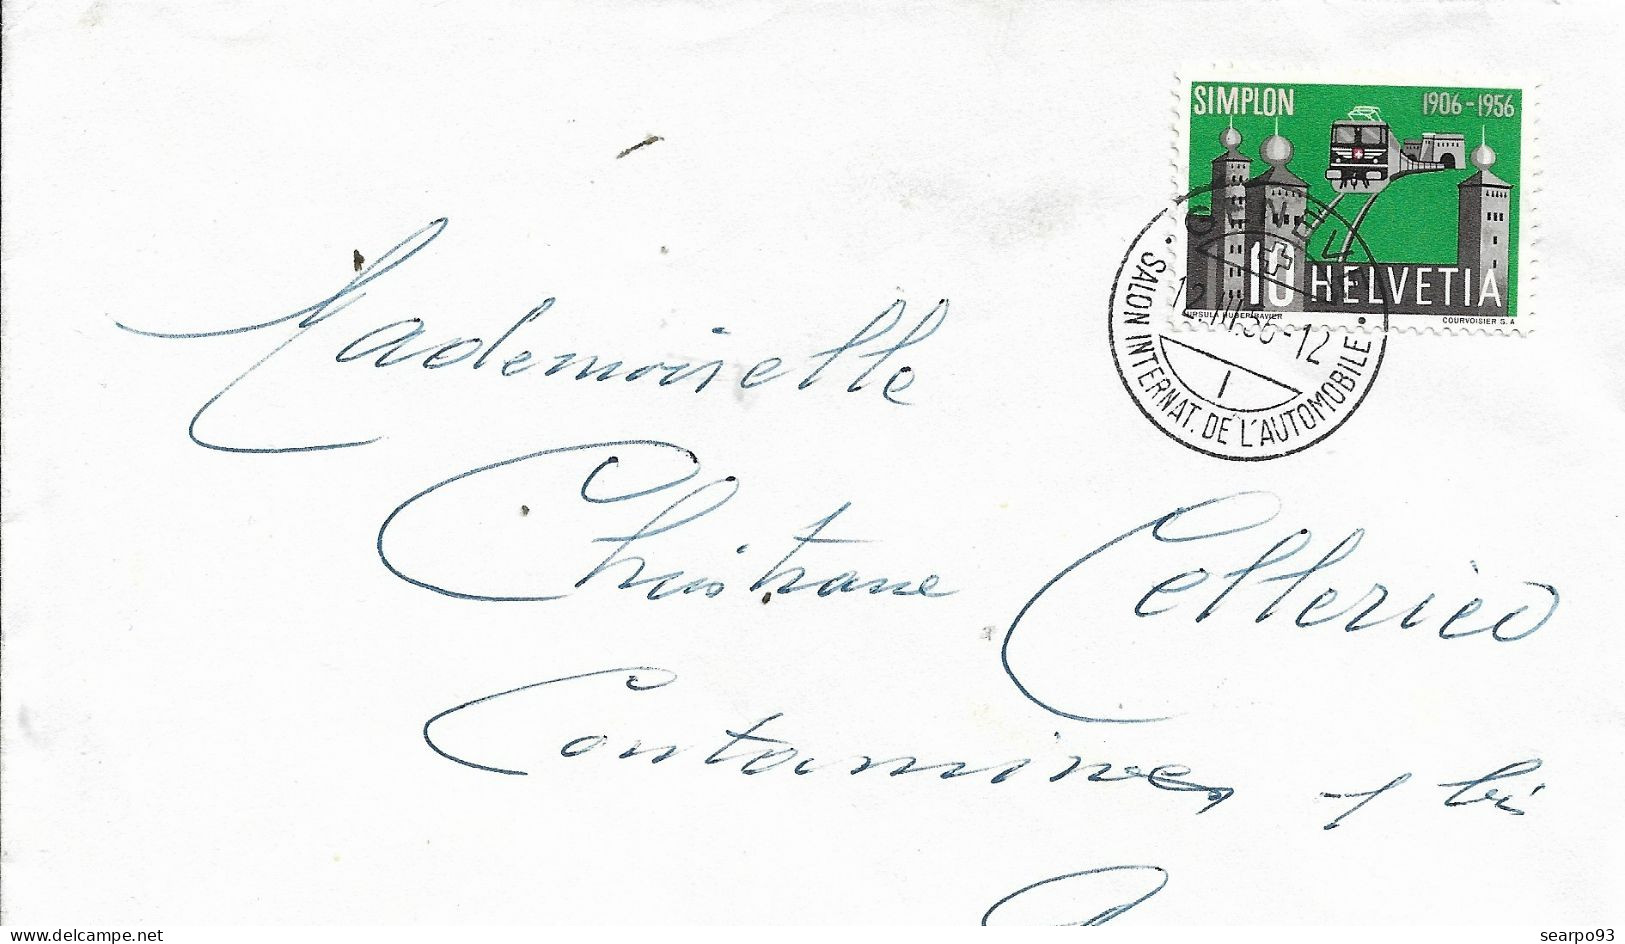 SIMPLON 1906-1956
10 HELVETIA
URSULA HUBER-BAVIER COURVOISIER S.A
GENÈVE
12.III.56-12
1
SALON INTERNAT. DE L'AUTOMOBILE
Mademoiselle
Christiane Cellerico
Contamines 7 bis
www.delcampe.net
searpo93